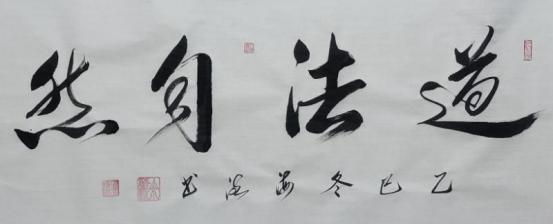 道法自然
乙巳冬海书